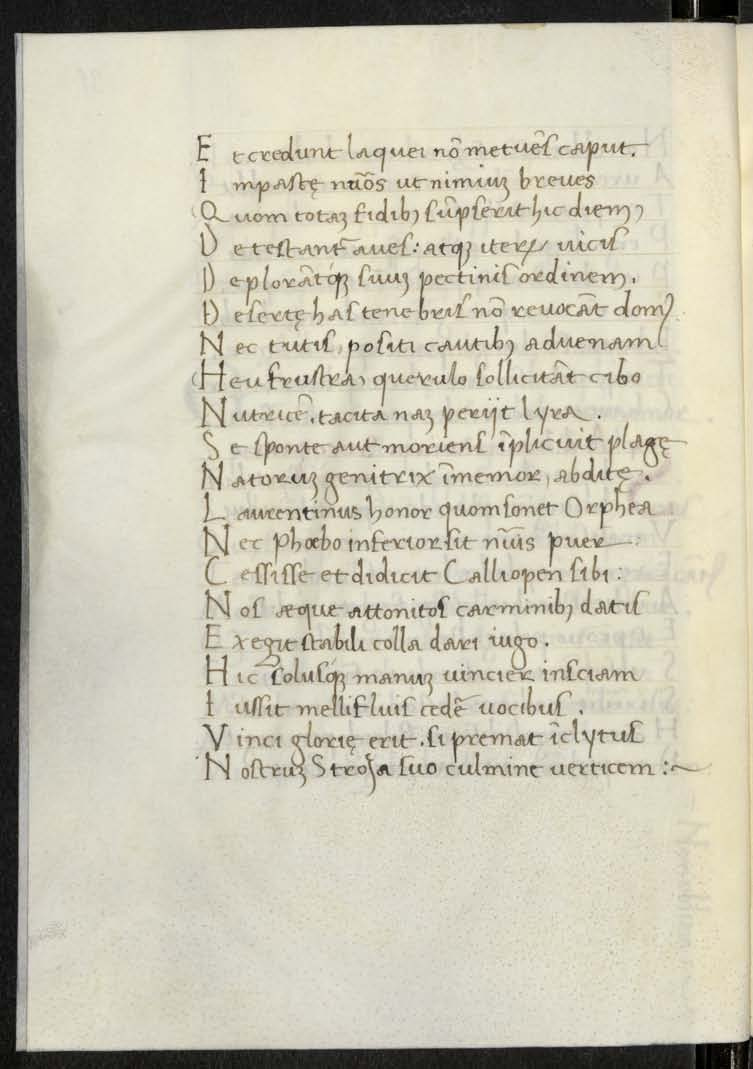 Et credunt laquei nō metuēs caput.
Impastę nr̄os ut nimiuꝫ breves
(Quom totaꝫ fidibꝫ sūpserit hic diem)
Detestant̄ aves: atqꝫ iterꝝ vicis
Deplorāt́qꝫ suuꝫ pectinis ordinem.
Desertę has tenebris nō revocāt domꝰ
Nec tutis, positi cautibꝫ advenam
(Heu frustra) querulo sollicitāt cibo
Nutricē, tacita naꝫ perijt lyra.
Se sponte aut moriens īplicuit plagę
Natoruꝫ genitrix īmemor, abditę.
Laurentinus honor quom sonet Orphea
Nec Phœbo inferior sit nīuis puer
Cessisse et didicit Calliopen sibi:
Nos æque attonitos carminibꝫ datis
Exegit stabili colla dari iugo.
Hic solusq́ꝫ manuꝫ vincier insciam
Iussit mellifluis cedē vocibus.
Vinci glorię erit. si premat īclytus
Nostruꝫ Stroja suo culmine verticem :~